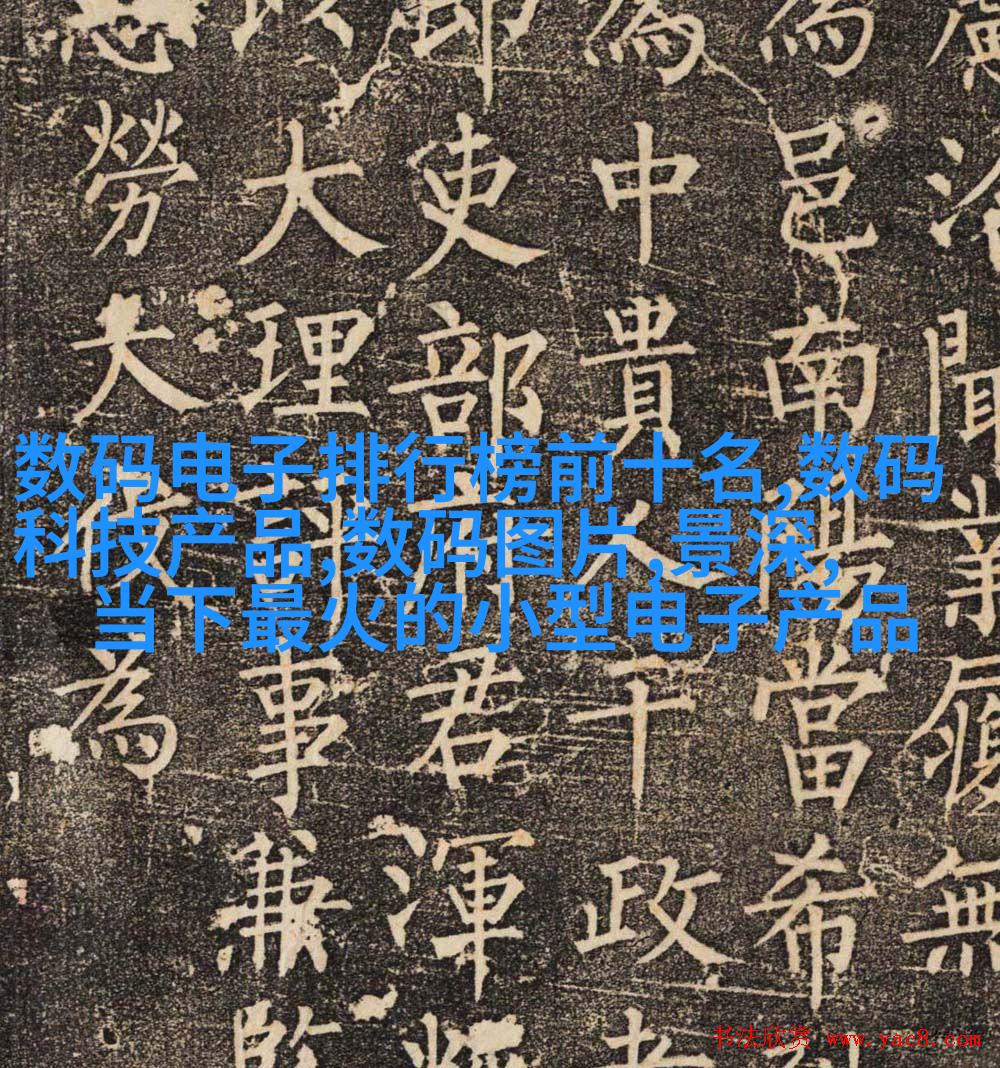 数码电子排行榜前十名,数码
科技产品,数码图片,景深,
当下最火的小型电子产品
聞業履無
為邑南陽當希
為中貴人干政
吏部君渾
以大理事兼監
勞大為
书法欣赏 www.yac8.com